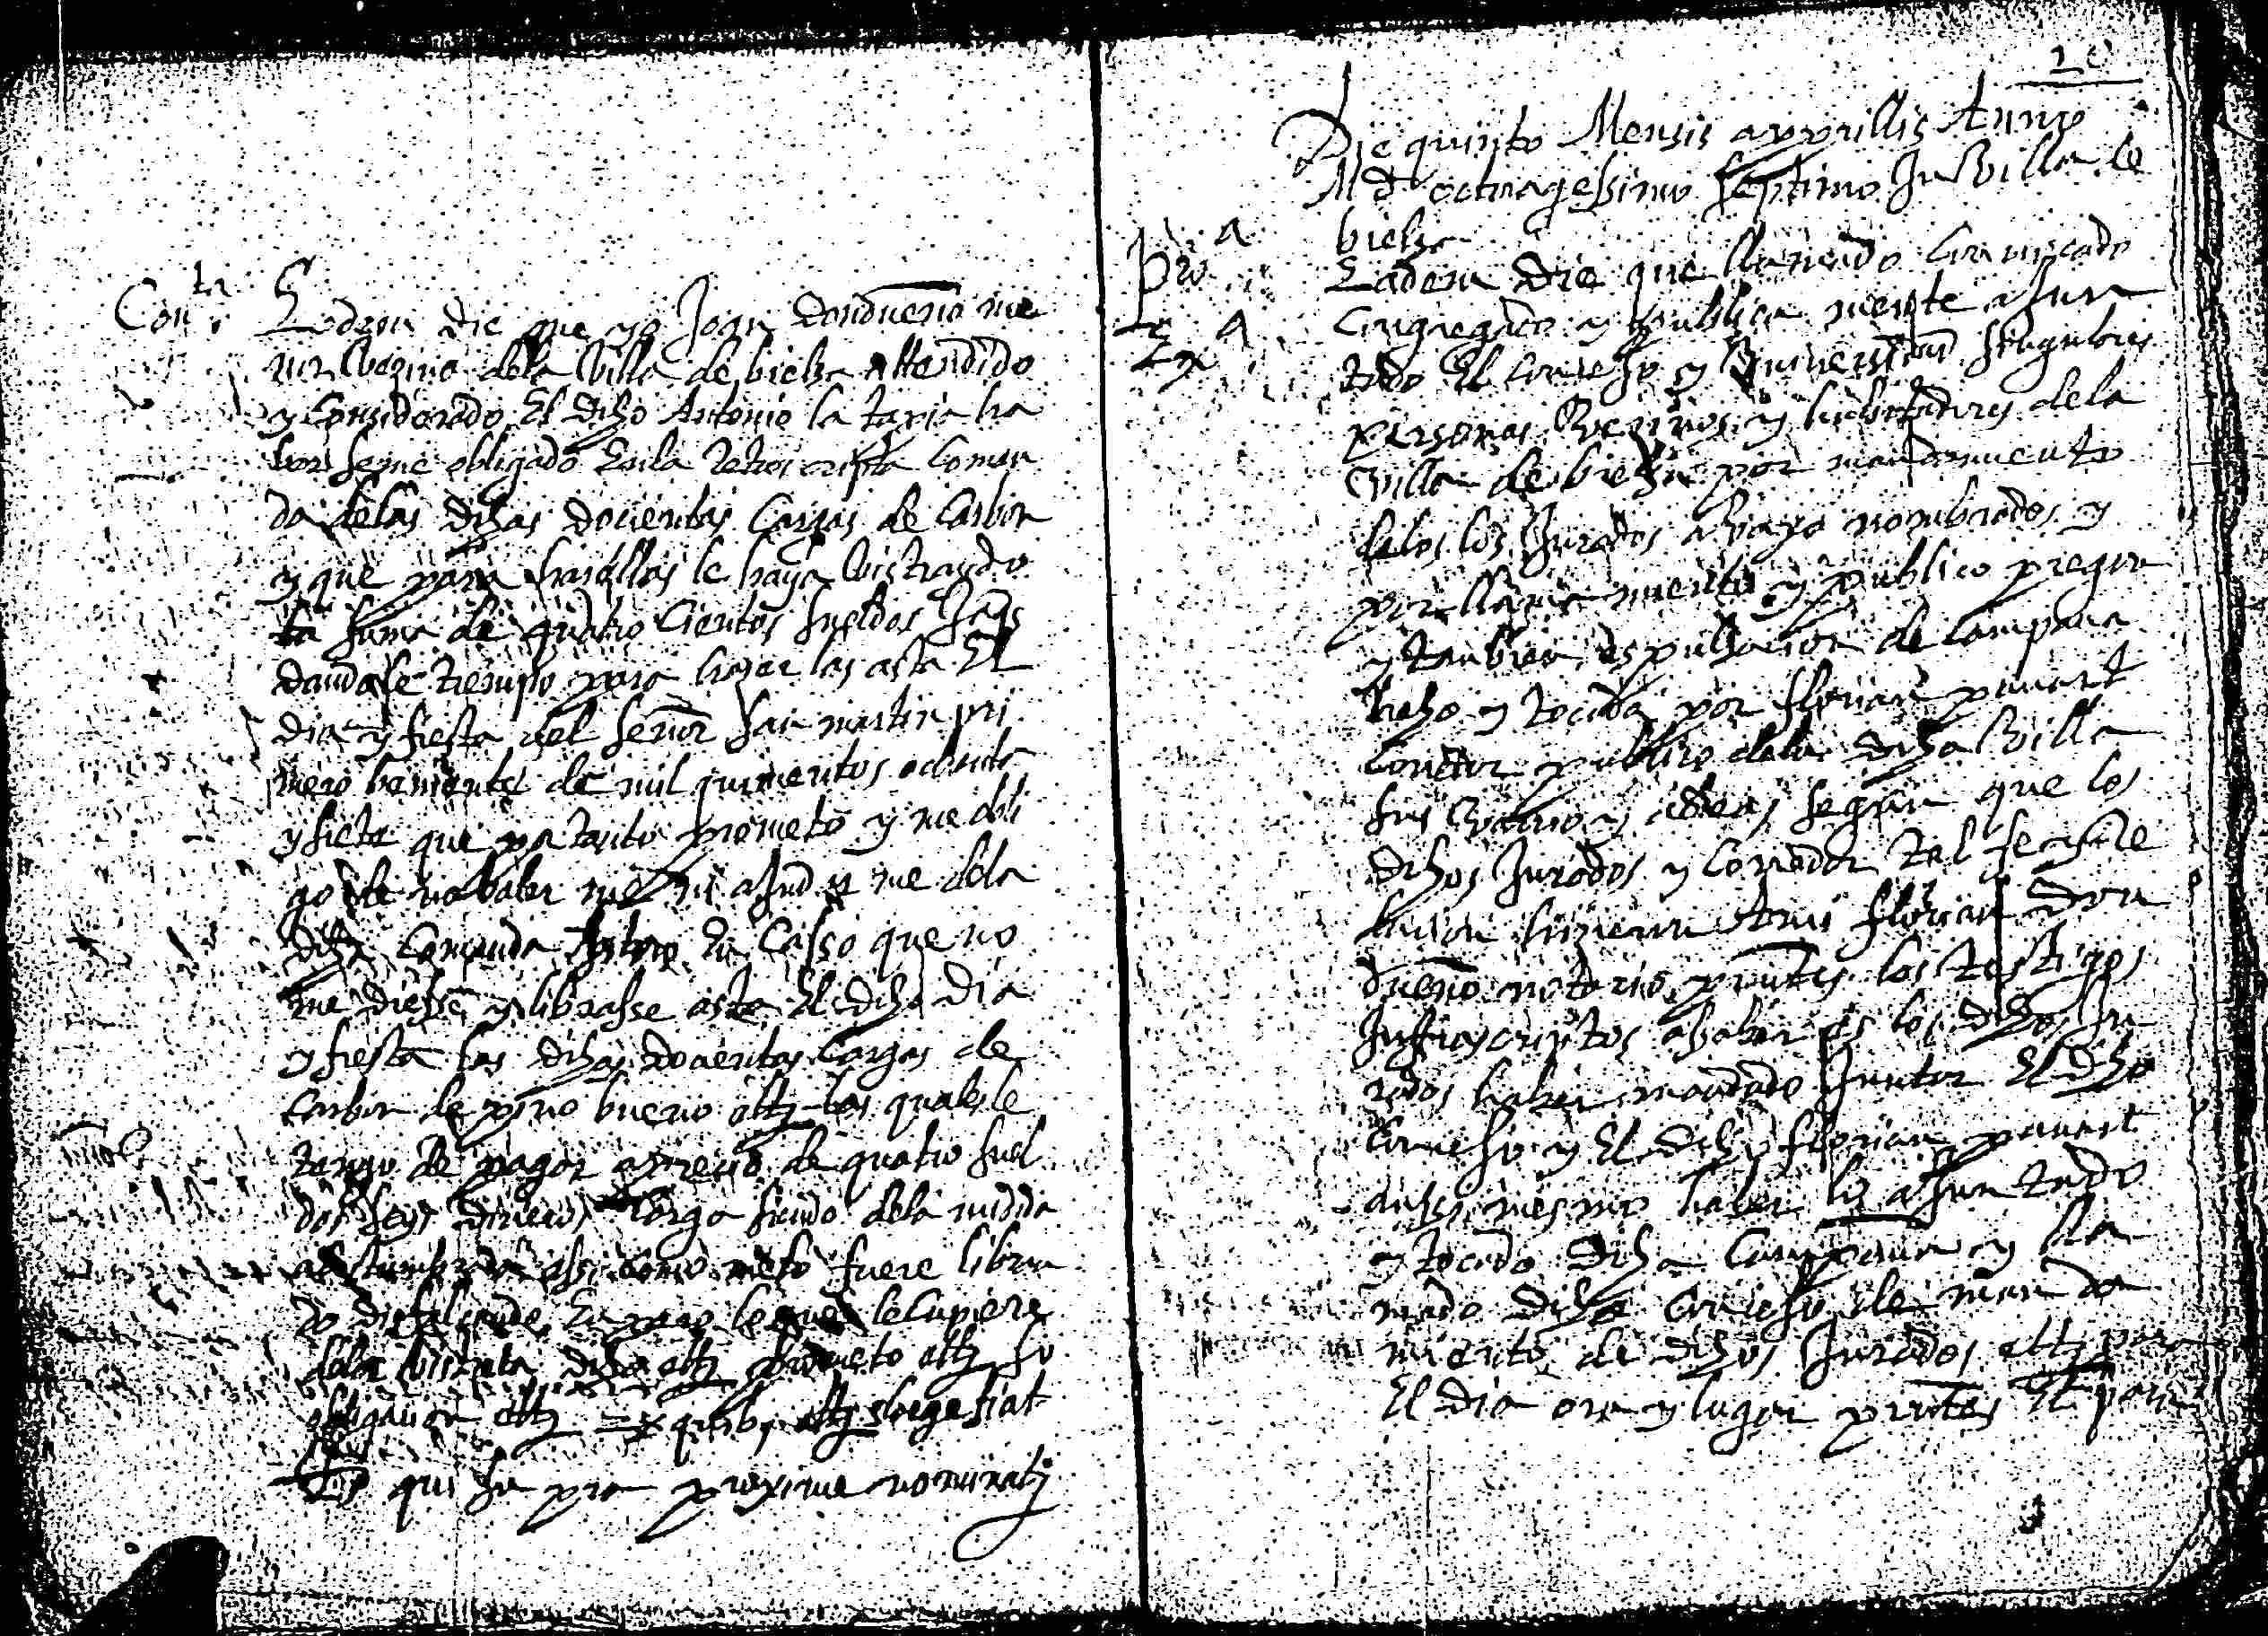 Conta
Eadem die que yo Joan Dondueño me
nor Vezino dela Villa de bielsa attendido
y Considerado El dicho Antonio la tapia ha
ber seme obligado En la retroscripta Coman
da delas dichas docientas Cargas de Carbon
y que para hazellas le haya bistraydo
la suma de quatro Cientos sueldos Jaqs
dandole tiempo para hazer las asta El
dia y fiesta del señor san martin pri
mero beniente de mil quinientos ochenta
y siete que por tanto prometo y me obli
go de no baler me ni ajudar me dela
dicha Comanda sino En Casso que no
me diesse y librasse asta El dicho dia
y fiesta las dichas docientas Cargas de
Carbon de pino bueno ettz las quales le
tengo de pagar a precio de quatro suel
dos seys dineros Carga siendo dela medida
acostumbrada assi como me lo fuere libran
do En pago lo que le Cupiere
dela bistreta dicha ettz prometo ettz so
obligacion ettz Ex quibus ettz large fiat
Ts qui supra proxime nominatj
20
Die quinto Mensis apprillis Anno
M D octuagessimo septimo In Villa de
bielsa
Eadem Die que llamado Conuocado
Congregado y publica mente ajun
tado El Concejo y Vniuersidad singulares
personas Vecinos y habitadores dela
Villa de bielsa por mandamiento
delos los Jurados abaxo nombrados y
por llamamiento y publico pregon
y tambien es pulsacion de Campana
hecho y tocida por florian pauart
Corredor publico dela dicha Villa
sus Varrios y aldeas segun que los
dichos Jurados y Corredor tal fe y Re
lacion hizieron Ami florian Don
dueño notario pntes los testigos
Infrascriptos a saber es los dichos Ju
rados haber mandado Juntar El dicho
Concejo y El dicho florian pauart
assi mesmo haber lo ajuntado
y tocado dicha Campana y lla
mado dicho Concejo de manda
miento de dichos Jurados ettz para
El dia ora y lugar pntes Et para